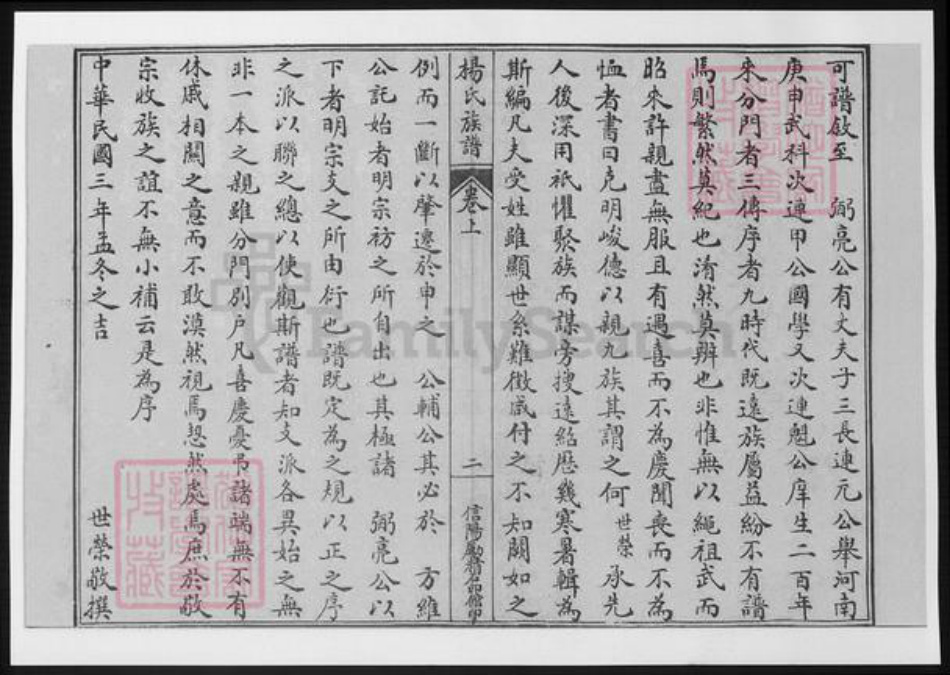 可譜敍至　弼亮公有丈夫子三長連元公舉河南
庚申武科次連甲公國學又次連魁公庠生二百年
來分門者三傳序者九時代既遠族屬益紛不有譜
焉則繁然莫紀也淆然莫辨也非惟無以繩祖武而
昭來許親盡無服且有遇喜而不為慶聞喪而不為
恤者書曰克明峻德以親九族其謂之何世榮承先
人後深用祇懼聚族而謀旁搜遠紹歷幾寒暑輯為
斯編凡夫受姓雖顯世系難徵咸付之不知闕如之
楊氏族譜　卷上　二　信陽勵精石印館印
例而一斷以肇遷於申之　公輔公其必於　方維
公託始者明宗祊之所自出也其極諸　弼亮公以
下者明宗支之所由衍也譜既定為之規以正之序
之派以聯之總以使觀斯譜者知支派各異始之無
非一本之親雖分門別戶凡喜慶憂弔諸端無不有
休戚相關之意而不敢漠然視焉恝然處焉庶於敬
宗收族之誼不無小補云是為序
中華民國三年孟冬之吉　世榮敬撰
FamilySearch